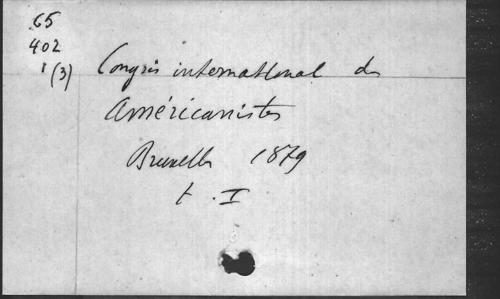 65
402
1 (3)
Congrès international des
Américanistes
Bruxelles 1879
t. I